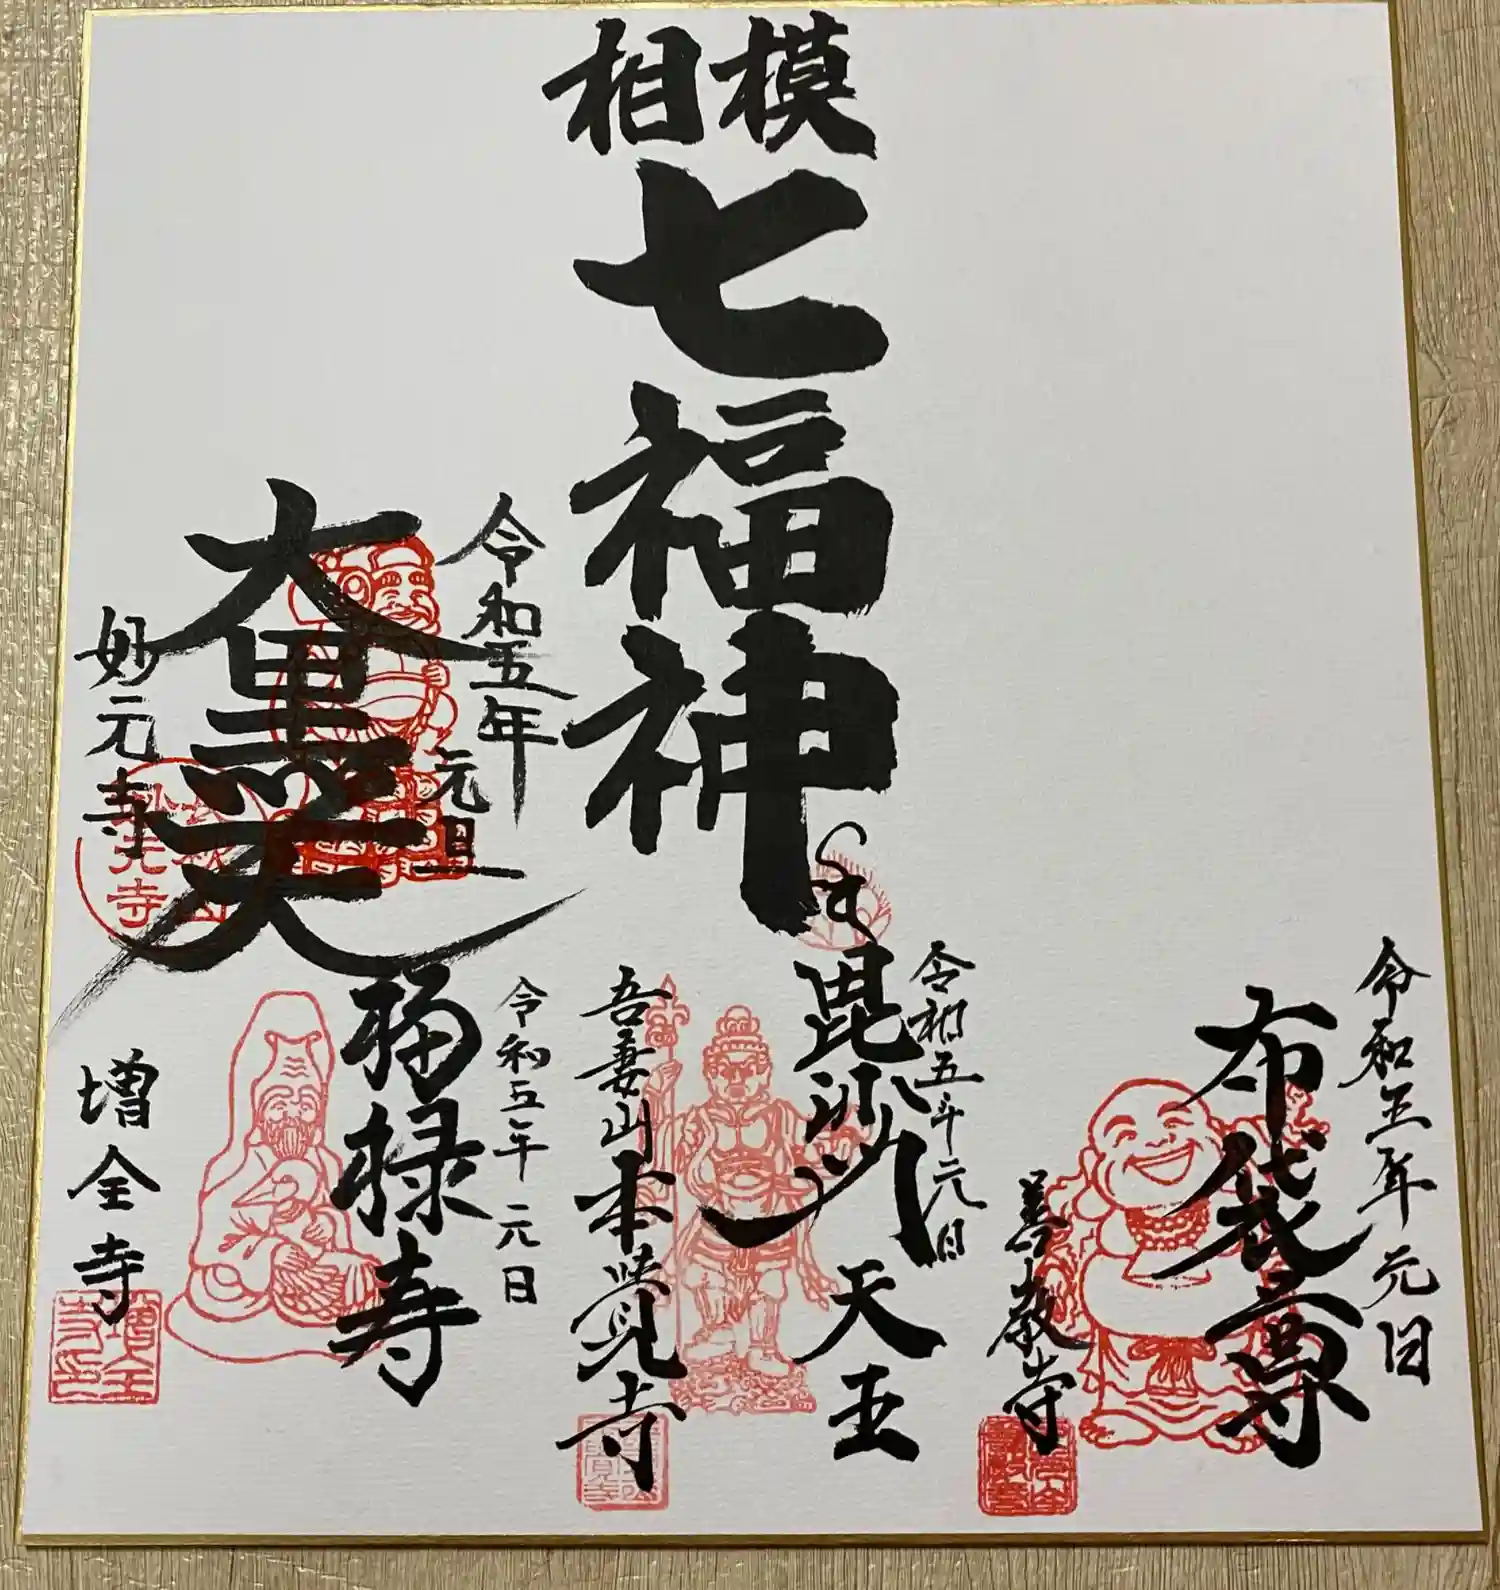 相模
七福神
令和五年元日
布袋尊
善教寺
令和五年元日
毘沙門天王
吾妻山本覺寺
令和五年元旦
大黒天
妙元寺
令和五年元日
福禄寿
増全寺
増全寺印